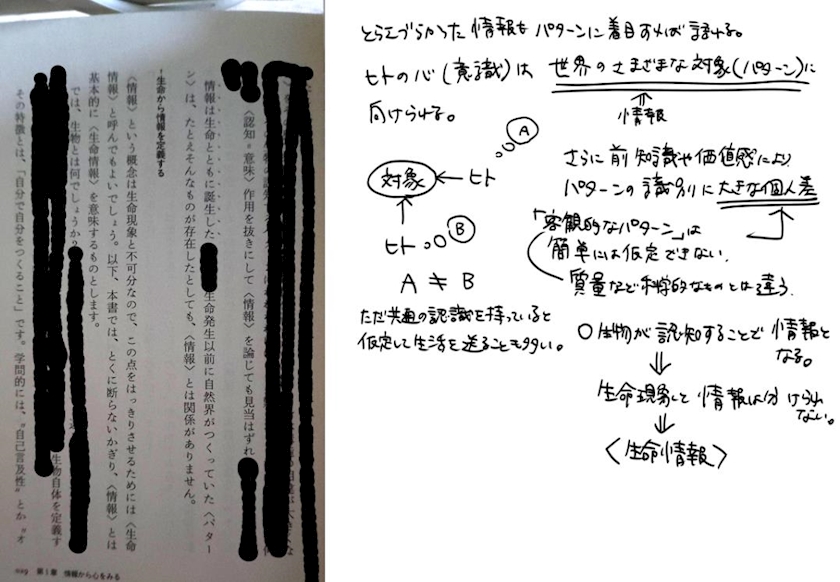 〈認知=意味〉作用を抜きにして〈情報〉を論じても見当はずれ
情報は生命とともに誕生した
生命発生以前に自然界がつくっていた〈パター
ン〉は、たとえそんなものが存在したとしても、〈情報〉とは関係がありません。
生命から情報を定義する
〈情報〉という概念は生命現象と不可分なので、この点をはっきりさせるためには〈生命
情報〉と呼んでもよいでしょう。以下、本書では、とくに断らないかぎり、〈情報〉とは
基本的に〈生命情報〉を意味するものとします。
では、生物とは何でしょうか?
生物自体を定義す
その特徴とは、「自分で自分をつくること」です。学問的には、"自己言及性"とか"オ
029 第1章 情報から心をみる
とらえづらかった情報もパターンに着目すれば話せる。
ヒトの心(意識)は世界のさまざまな対象(パターン)に
向けられる。
情報
A
対象 ヒト
ヒト B
A ≠ B
さらに前知識や価値感により
パターンの識別に大きな個人差
「客観的なパターン」は
簡単には仮定できない。
質量など科学的なものとは違う。
ただ共通の認識を持っていると
仮定して生活を送ることも多い。
○生物が認知することで情報と
なる。
生命現象と情報は分けられ
ない。
〈生命情報〉